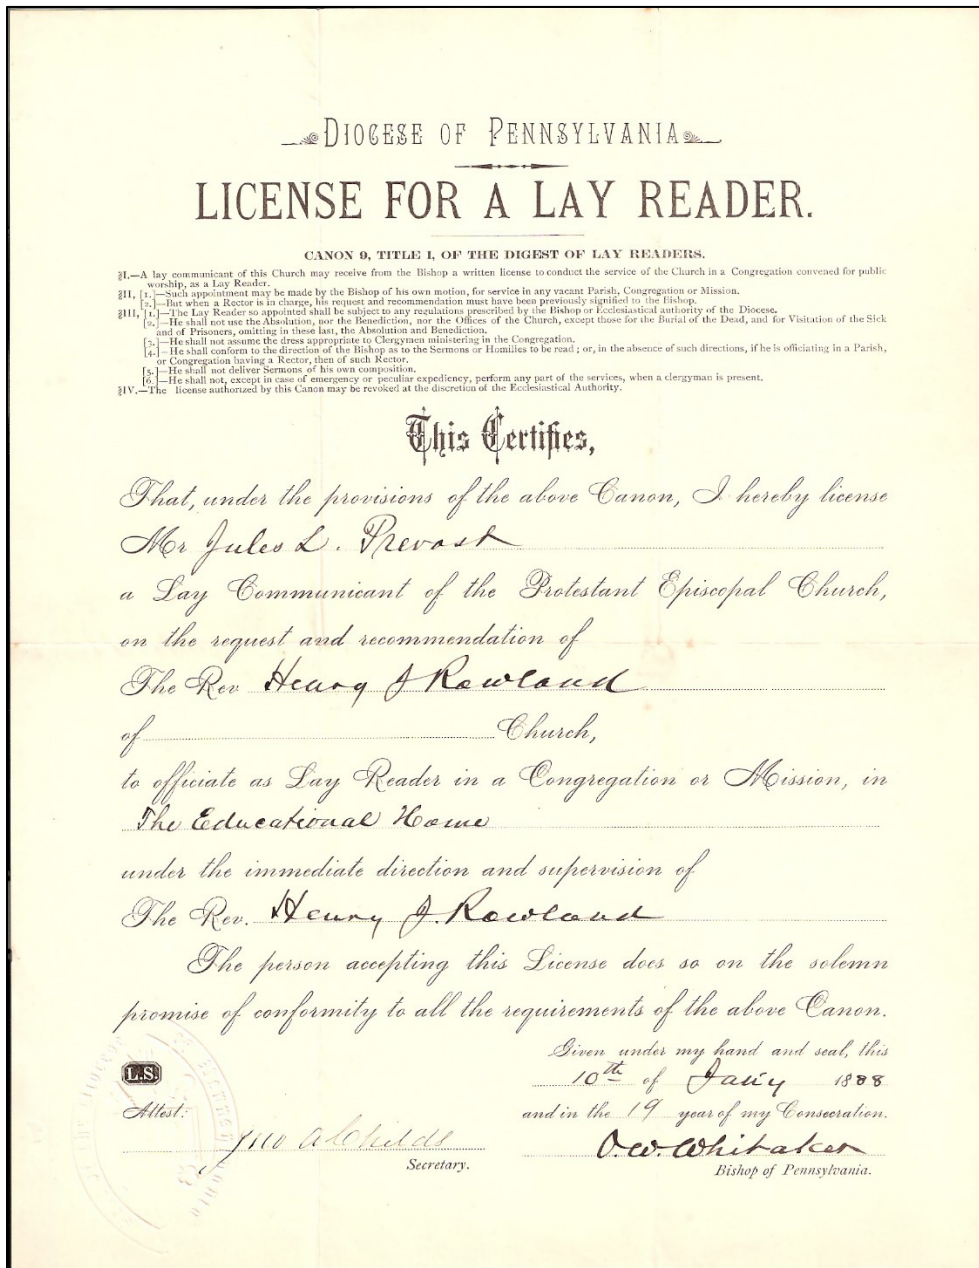 DIOCESE OF PENNSYLVANIA
LICENSE FOR A LAY READER.
CANON 9, TITLE I, OF THE DIGEST OF LAY READERS.
§I.—A lay communicant of this Church may receive from the Bishop a written license to conduct the service of the Church in a Congregation convened for public
worship, as a Lay Reader.
§II, [1.]—Such appointment may be made by the Bishop of his own motion, for service in any vacant Parish, Congregation or Mission.
[2.]—But when a Rector is in charge, his request and recommendation must have been previously signified to the Bishop.
§III, [1.]—The Lay Reader so appointed shall be subject to any regulations prescribed by the Bishop or Ecclesiastical authority of the Diocese.
[2.]—He shall not use the Absolution, nor the Benediction, nor the Offices of the Church, except those for the Burial of the Dead, and for Visitation of the Sick
and of Prisoners, omitting in these last, the Absolution and Benediction.
[3.]—He shall not assume the dress appropriate to Clergymen ministering in the Congregation.
[4.]—He shall conform to the direction of the Bishop as to the Sermons or Homilies to be read; or, in the absence of such directions, if he is officiating in a Parish,
or Congregation having a Rector, then of such Rector.
[5.]—He shall not deliver Sermons of his own composition.
[6.]—He shall not, except in case of emergency or peculiar expediency, perform any part of the services, when a clergyman is present.
§IV.—The license authorized by this Canon may be revoked at the discretion of the Ecclesiastical Authority.
This Certifies,
That, under the provisions of the above Canon, I hereby license
Mr Jules L. Prevost
a Lay Communicant of the Protestant Episcopal Church,
on the request and recommendation of
The Rev Henry J Rowland
of Church,
to officiate as Lay Reader in a Congregation or Mission, in
The Educational Home
under the immediate direction and supervision of
The Rev. Henry J. Rowland
The person accepting this License does so on the solemn
promise of conformity to all the requirements of the above Canon.
Given under my hand and seal, this
L.S. 10th of Jany 1888
Attest: and in the 19 year of my Consecration.
Jno A Childs O. W. Whitaker
Secretary. Bishop of Pennsylvania.